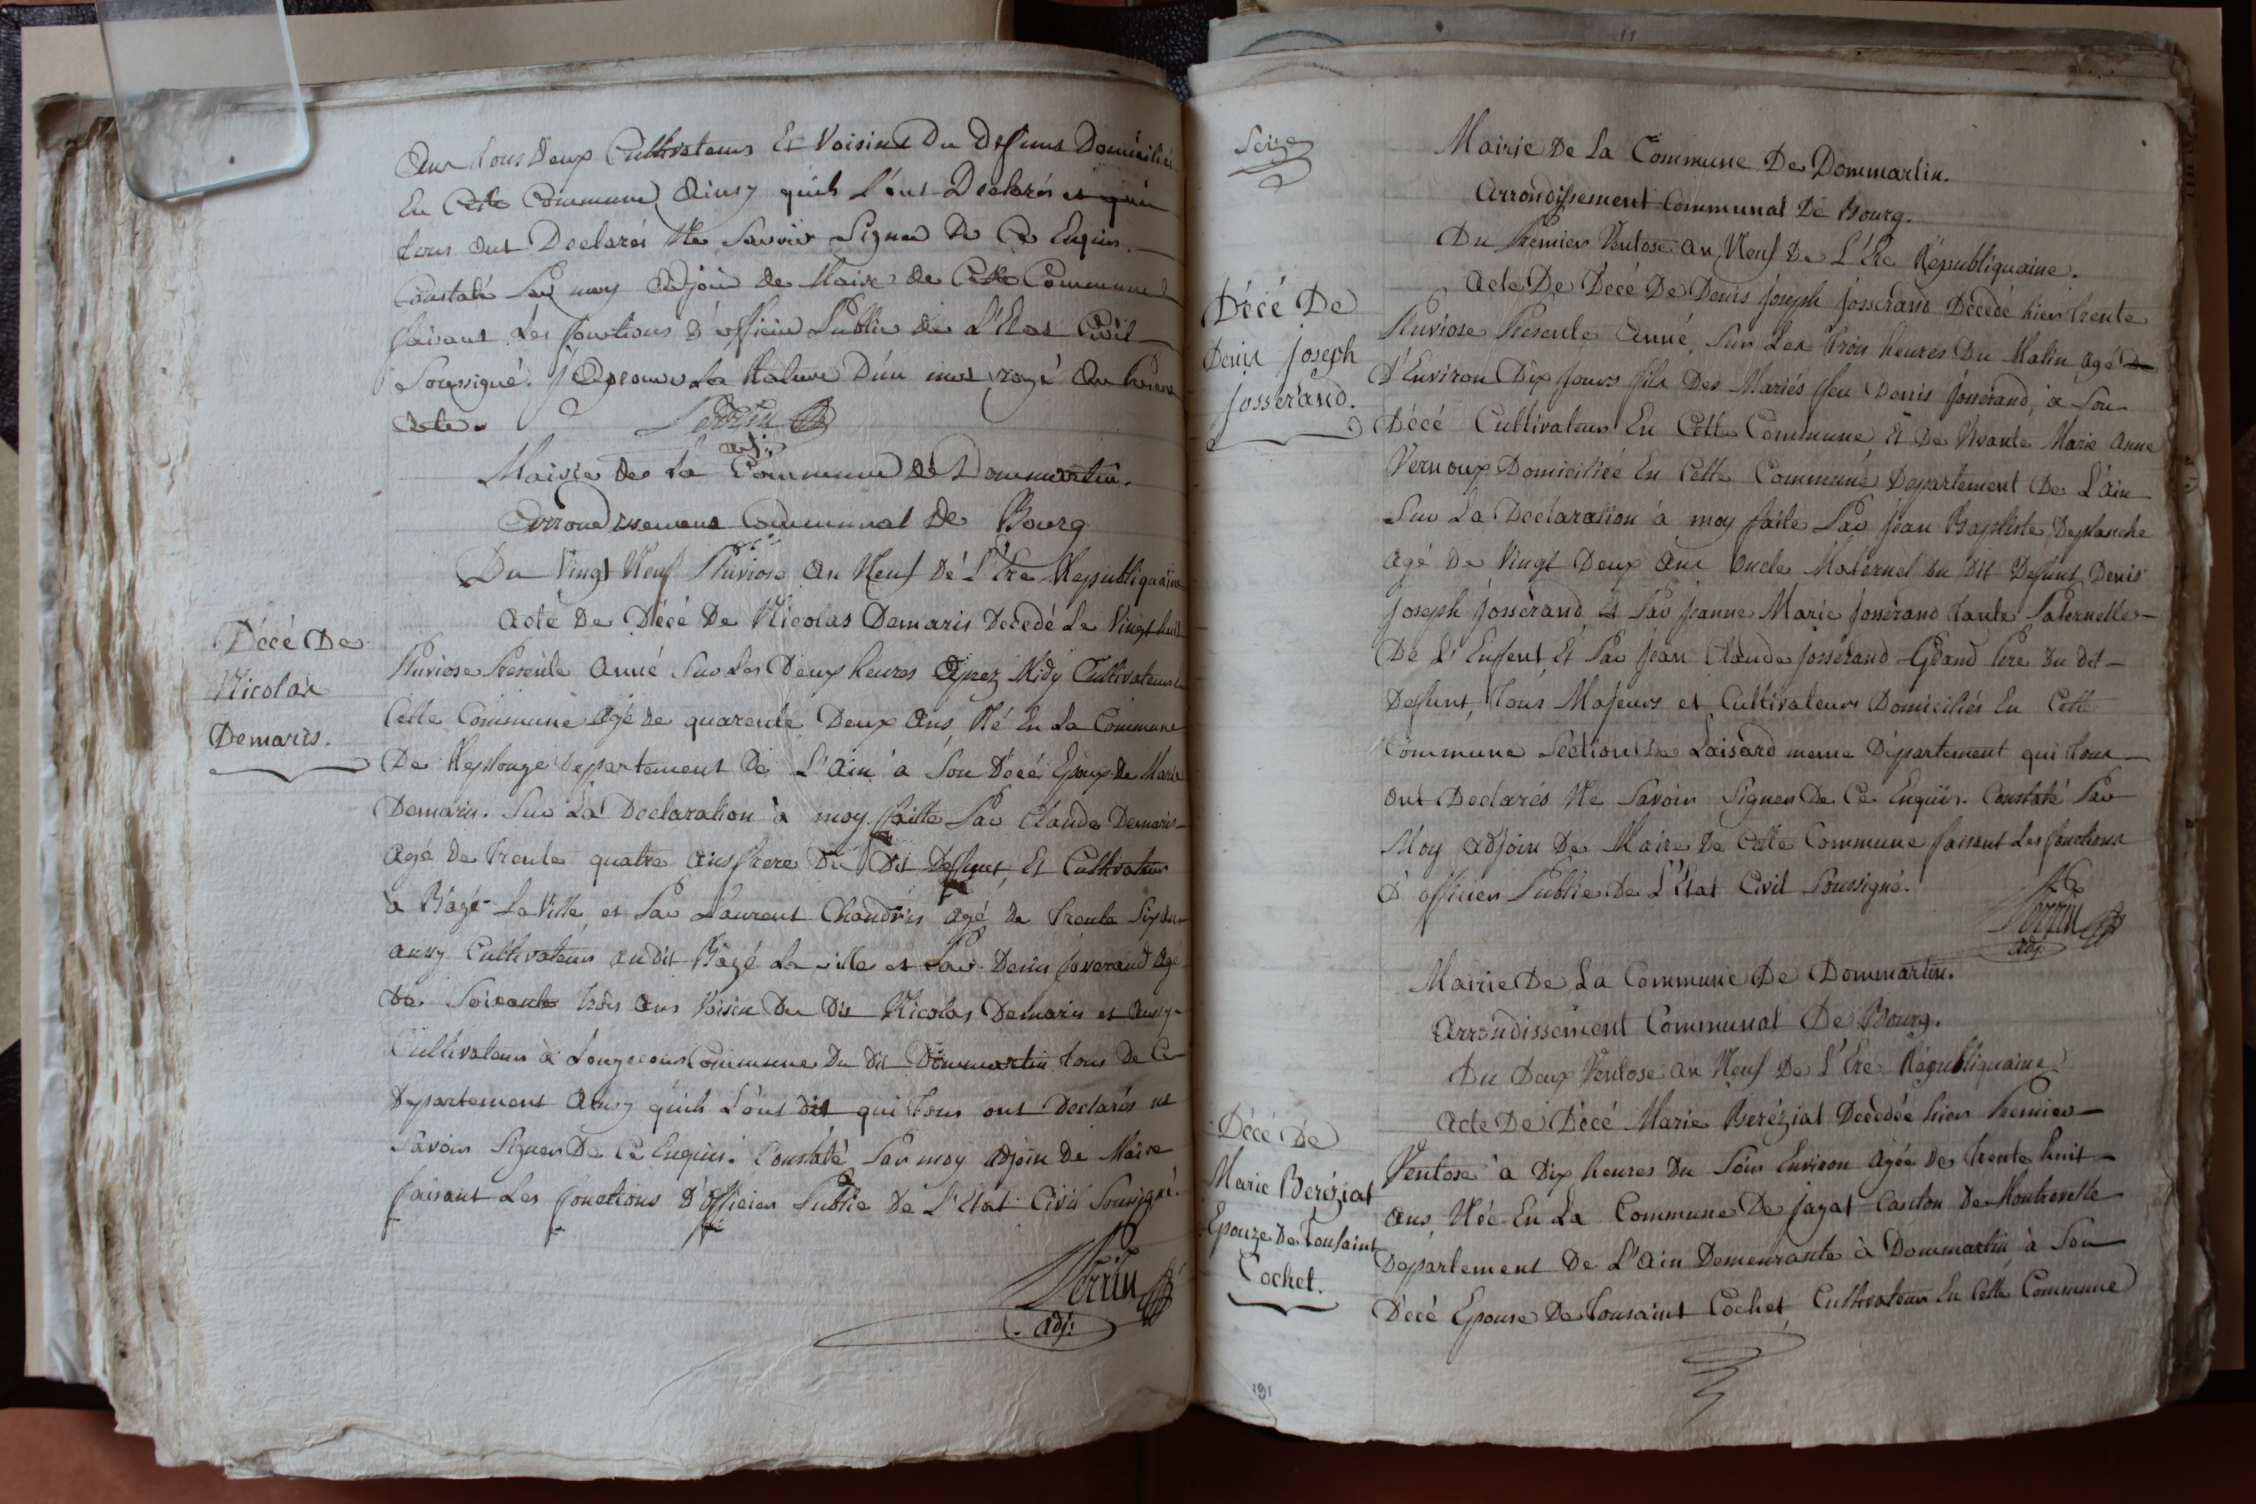 Ans tous Deux Cultivateurs Et Voisins Du Defunt Domiciliés
En Cette Commune, Ainsy quils L'ont Declarés et qui
tous ont Declarés Ne Savoir Signer De Ce Enquis.
Constaté Par moy adjoin de Maire de Cette Commune
faisant Les fonctions d'officier Public de L'Etat Civil
Soussigné. J'Aprouve La Rature D'un mot rayé
Acte.
Perrin
adj:
Mairie de La Commune de Dommartin.
Arrondissement Communal De Bourg
Du Vingt Neuf Pluviose An Neuf De L'Ere Republiquaine
Acte De Décé De Nicolas Demaris Decedé Le Vingt huit
Pluviose Presente Anné Sur Les Deux heures Aprez Midy Cultivateur
Cette Commune Agé de quarente Deux Ans, Né En La Commune
De Replonge Departement De L'Ain à Son Décé Epoux De Marie
Demaris. Sur La Declaration à moy faitte Par Claude Demaris
Agé De trente quatre Ans frere Du Dit Defunt, Et Cultivateur
à Bâgé La Ville, et Par Laurent Chandris Agé de trente Six
aussy Cultivateur au dit Bâgé La ville et Par Denis Josserand Agé
De Soixante trois ans Voisin Du Dit Nicolas Demaris et Aussy
Cultivateur à Longecour Commune Du Dit Dommartin tous De Ce
Departement Ainsy quils L'ont dit qui tous ont Declarés ne
Savoir Signer De Ce Enquis. Constaté Par moy adjoin De Maire
faisant Les fonctions D'Officier Public De L'Etat Civil Soussigné.
Perrin
adj:
Décé De
Nicolas
Demaris.
Seize
Mairie De La Commune De Dommartin.
Arrondissement Communal De Bourg.
Du Premier Ventose An Neuf De L'Ere Républiquaine.
Acte De Décé De Denis Joseph Josserand Décédé hier trente
Pluviose Presente Anné, Sur Les trois heures Du Matin Agé De
D'Environ Dix Jours fils Des Mariés feu Denis Josserand, à Son
Décé Cultivateur En Cette Commune Et De Vivante Marie Anne
Vernoux Domiciliée En Cette Commune Departement De L'Ain
Sur La Declaration à moy faite Par Jean Baptiste Deplanche
Agé De Vingt Deux Ans Oncle Maternel Du Dit Defunt Denis
Joseph Josserand, Et Par Jeanne Marie Josserand tante Paternelle
De L'Enfent Et Par Jean Claude Josserand Grand Pere Du Dit
Defunt, tous Majeurs et Cultivateurs Domiciliés En Cette
Commune Section De Loisard meme Département qui tous
ont Declarés Ne Savoir Signer De Ce Enquis. Constaté Par
Moy adjoin De Maire De Cette Commune faisant Les fonctions
D'officier Public De L'Etat Civil Soussigné.
Perrin
adj.
Décé De
Denis Joseph
Josserand.
Mairie De La Commune De Dommartin.
Arrondissement Communal De Bourg.
Du Deux Ventose An Neuf De L'Ere Républiquaine
Acte De Décé Marie Beréziat Decedée hier Premier
Ventose à Dix heures Du Soir Environ Agée De trente huit
Ans, Née En La Commune De Jayat Canton De Montrevelle
Departement De L'Ain Demeurante à Dommartin à Son
Décé Epouse De Tousaint Cochet Cultivateur En Cette Commune
Décé De
Marie Beréziat
Epouze De Tousaint
Cochet.
191